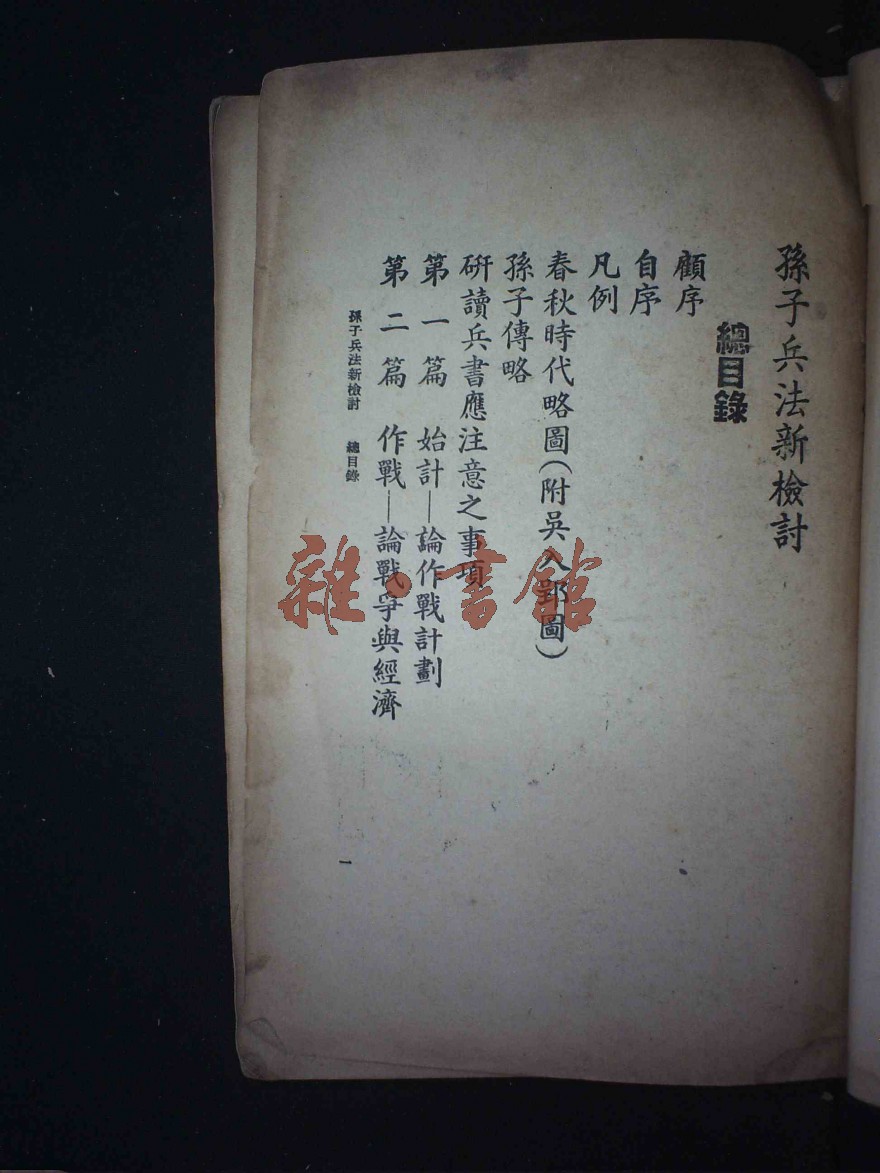 孫子兵法新檢討
總目錄
顧序
自序
凡例
春秋時代略圖(附吳入郢圖)
孫子傳略
研讀兵書應注意之事項
第一篇 始計—論作戰計劃
第二篇 作戰—論戰爭與經濟
孫子兵法新檢討 總目錄
一
雜·書館